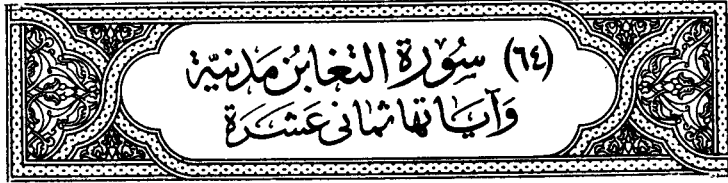 (٦٤) سُورَة التغابن مَدَنيّة
وَآيَاتها ثمانى عَشَرَة